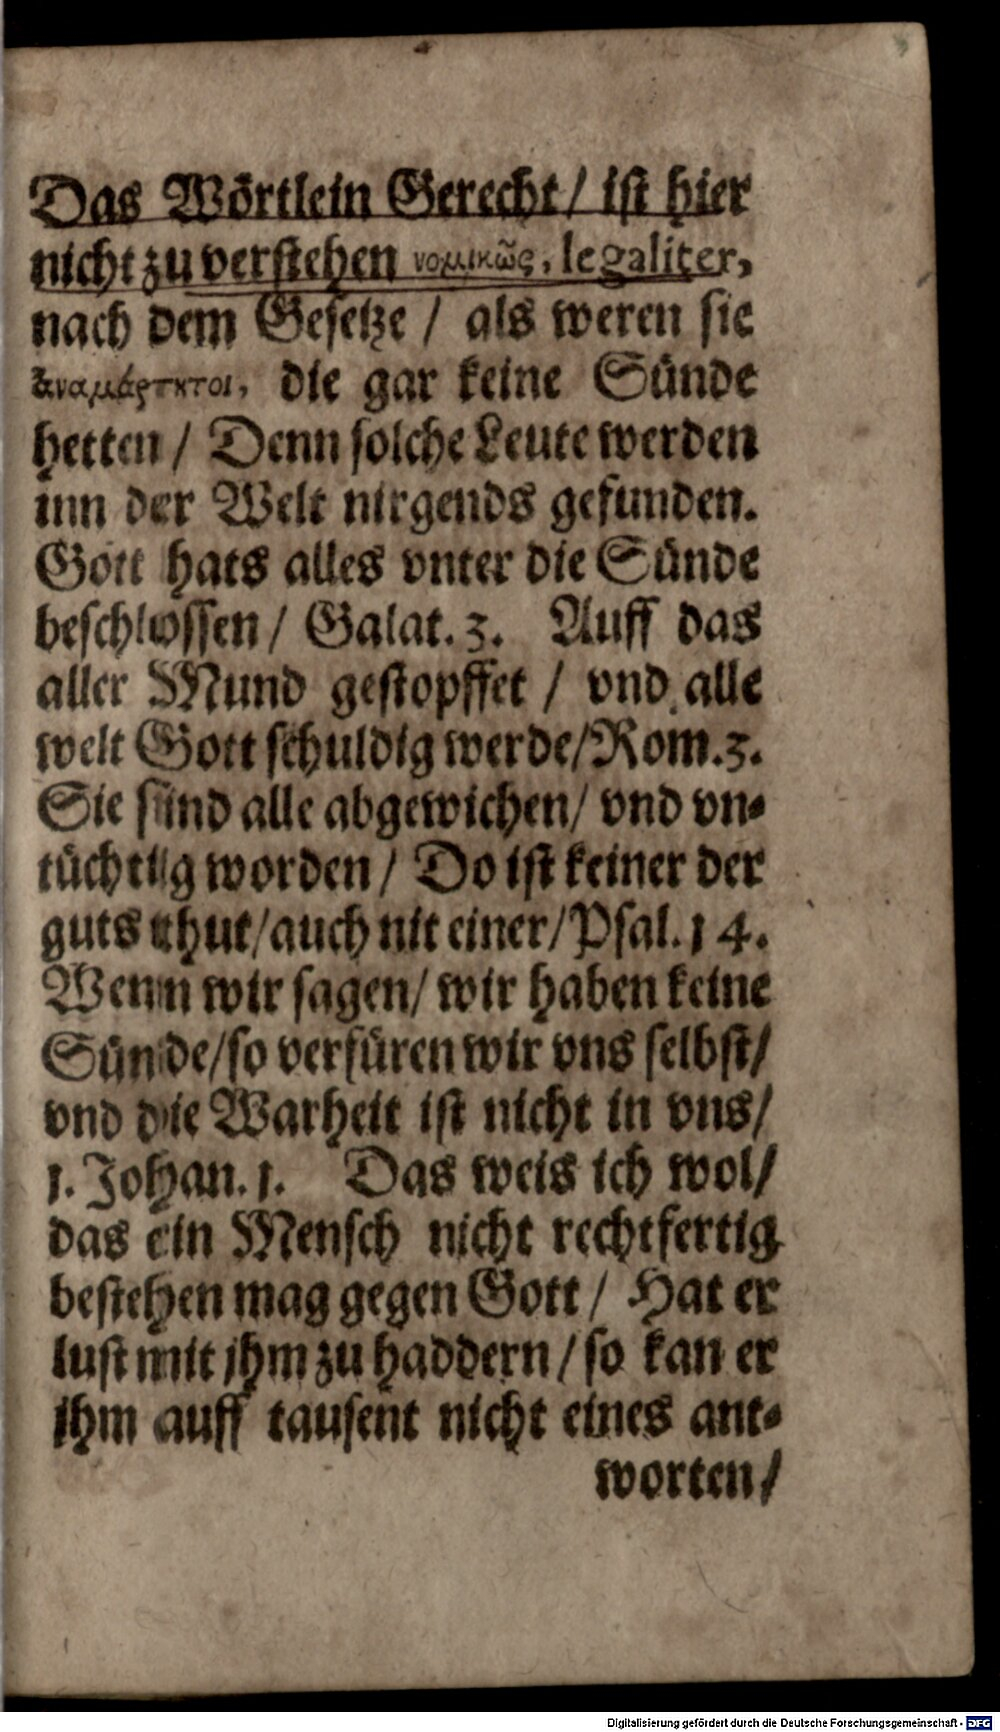 Das Wörtlein Gerecht/ ist hier
nicht zu verstehen νομικῶς, legaliter,
nach dem Gesetze / als weren sie
ἀναμάρτητοι, die gar keine Sünde
hetten / Denn solche Leute werden
inn der Welt nirgends gefunden.
Gott hats alles vnter die Sünde
beschlossen / Galat. 3. Auff das
aller Mund gestopffet / vnd alle
welt Gott schuldig werde/Rom.3.
Sie sind alle abgewichen/ vnd vn-
tüchtig worden / Do ist keiner der
guts thut/auch nit einer/Psal.14.
Wenn wir sagen/ wir haben keine
Sünde/so verfüren wir vns selbst/
vnd die Warheit ist nicht in vns/
1. Johan. 1. Das weis ich wol/
das ein Mensch nicht rechtfertig
bestehen mag gegen Gott / Hat er
lust mit jhm zu haddern / so kan er
jhm auff tausent nicht eines ant-
worten/
Digitalisierung gefördert durch die Deutsche Forschungsgemeinschaft - DFG